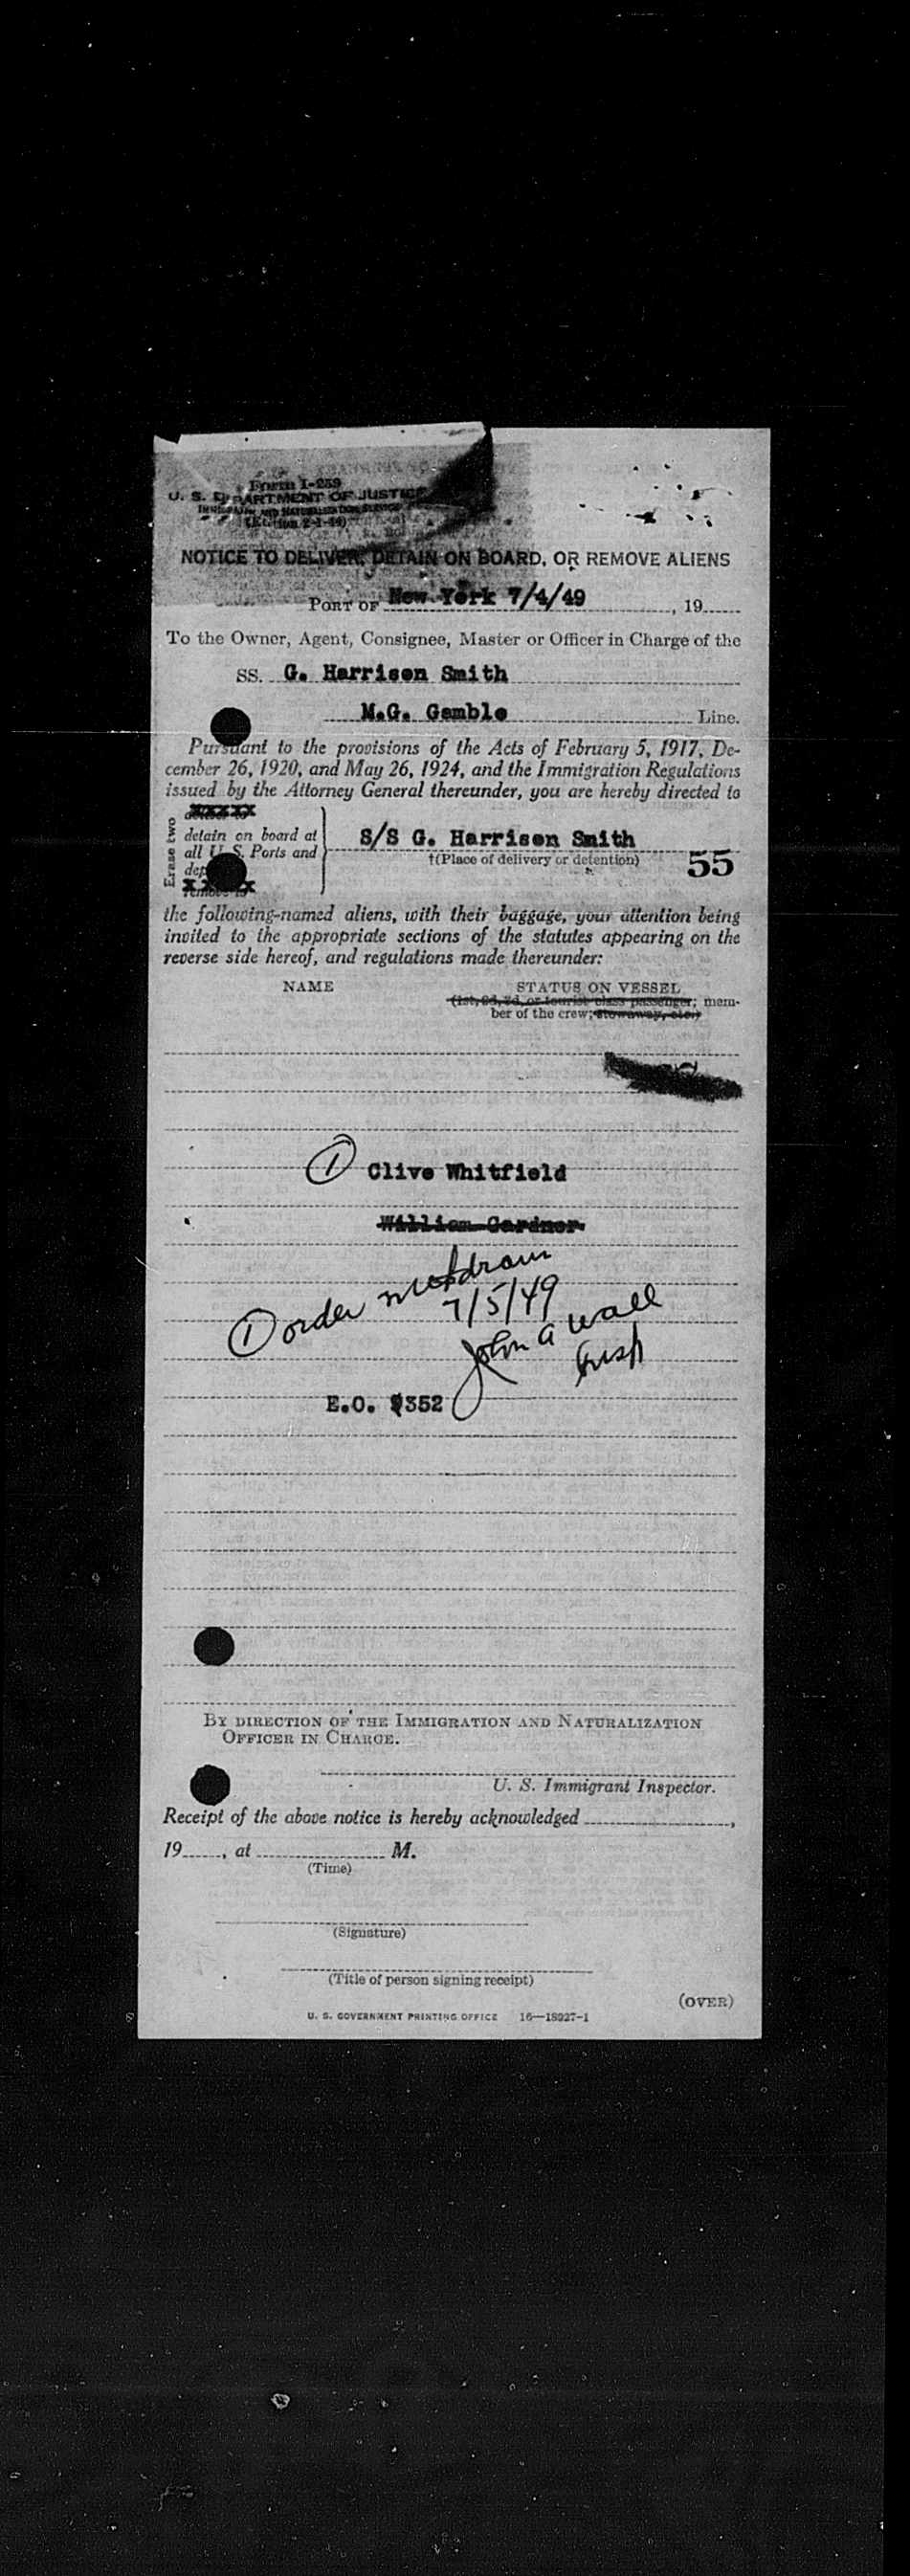 Form I-259
U. S. DEPARTMENT OF JUSTICE
IMMIGRATION AND NATURALIZATION SERVICE
(Edition 2-1-44)
NOTICE TO DELIVER, DETAIN ON BOARD, OR REMOVE ALIENS
PORT OF New York 7/4/49, 19
To the Owner, Agent, Consignee, Master or Officer in Charge of the
SS. G. Harrison Smith
M.G. Gamble Line.
Pursuant to the provisions of the Acts of February 5, 1917, De-
cember 26, 1920, and May 26, 1924, and the Immigration Regulations
issued by the Attorney General thereunder, you are hereby directed to
Erase two
detain on board at
all U. S. Ports and
remove to
S/S G. Harrison Smith
†(Place of delivery or detention)
55
the following-named aliens, with their baggage, your attention being
invited to the appropriate sections of the statutes appearing on the
reverse side hereof, and regulations made thereunder:
NAME STATUS ON VESSEL
(1st, 2d, 3d, or tourist class passenger; mem-
ber of the crew; stowaway, etc.)
1 Clive Whitfield
William Gardner
1 order
7/5/49
John A Wall
Insp
E.O. 9352
BY DIRECTION OF THE IMMIGRATION AND NATURALIZATION
OFFICER IN CHARGE.
U. S. Immigrant Inspector.
Receipt of the above notice is hereby acknowledged ,
19 , at M.
(Time)
(Signature)
(Title of person signing receipt)
(OVER)
U. S. GOVERNMENT PRINTING OFFICE 16—18927-1